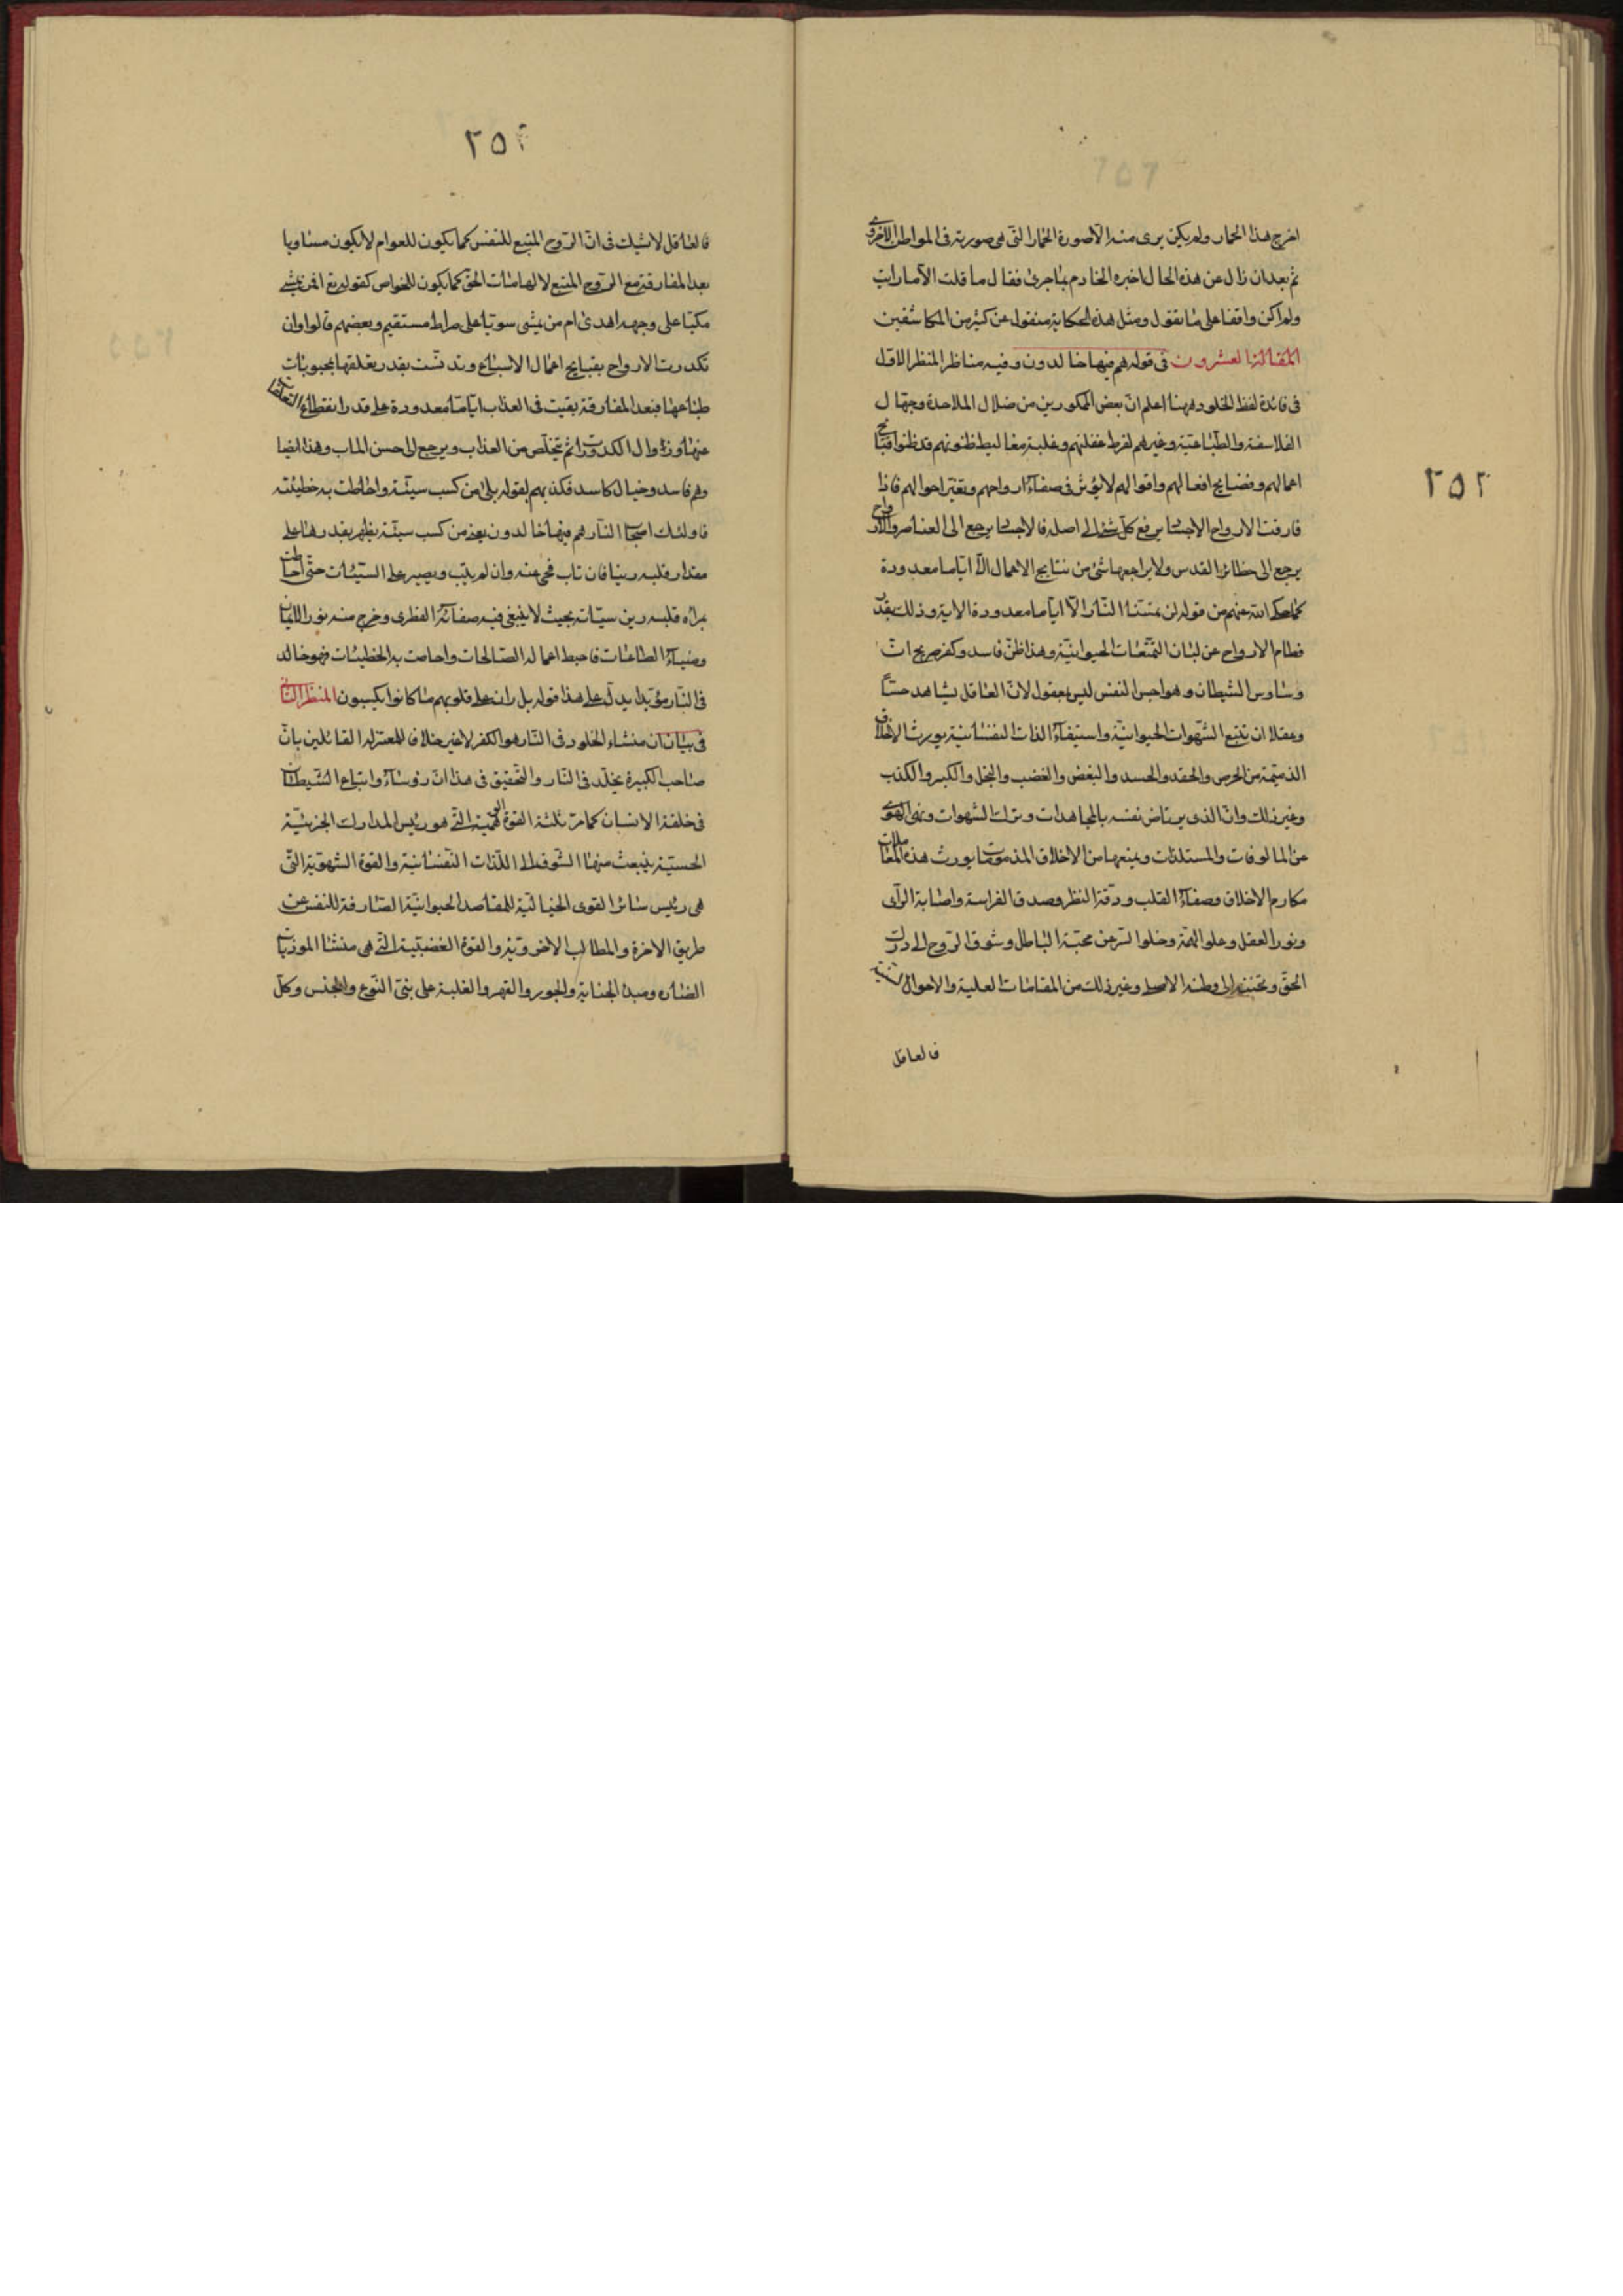 اخرج هذا الحمار ولم يكن يرى منه الا صورة الحمار التى هى صورته فى المواطن الاخروى
ثم بعد ان زال عن هذه الحال اخبره الخادم بما جرى فقال ما قلت الا ما رايت
ولم اكن واقفا على ما نقول ومثل هذه الحكاية منقولة عن كثير من المكاشفين
المقالة العشرون فى قوله هم فيها خالدون وفيه مناظر المنظر الاول
فى فائدة لفظ الخلود ههنا اعلم ان بعض الممكورين من ضلال الملاحدة وجهال
الفلاسفة والطباعية وغيرهم لفرط غفلتهم وغلبة مغاليط ظنونهم قد ظنوا ان قبايح
اعمالهم وفضايح افعالهم واقوالهم لا يؤثر فى صفاء ارواحهم وتغير احوالهم فاذا
فارقت الارواح الاجساد يرفع كل شئ الى اصله فالاجساد يرجع الى العناصر والارواح
يرجع الى حظائر القدس ولا يراجعها شئ من نتايج الاعمال الا اياما معدودة
كما حكى الله عنهم من قوله لن تمسنا النار الا اياما معدودة الاية وذلك بقدر
فطام الارواح عن لبان التمتعات الحيوانية وهذا ظن فاسد وكفر صريح ان
وساوس الشيطان وهواجس النفس ليس بمعقول لان العاقل يشاهد حسا
وعقلا ان تتبع الشهوات الحيوانية واستيفاء الذات النفسانية يورث الاخلاق
الذميمة من الحرص والحقد والحسد والبغض والغضب والبخل والكبر والكذب
وغير ذلك وان الذى يرتاض نفسه بالمجاهدات وترك الشهوات ونهى الهوى
عن المالوفات والمستلذات ويمنعها من الاخلاق المذمومة يورث هذه المعاملات
مكارم الاخلاق وصفاء القلب ودقة النظر وصدق الفراسة واصابة الراى
ونور العقل وعلو الهمة وخلو السر عن محبة الباطل وشوق الروح الى درك
الحق وتحننه الى وطنه الاصلى وغير ذلك من المقامات العلية والاحوال السنية
فالعاقل
٢٥٣
٢٥٤
فالعاقل لا يشك فى ان الروح المتبع للنفس كما يكون للعوام لا يكون مساويا
بعد المفارقة مع الروح المتبع لالهامات الحق كما يكون للخواص كقوله تع افمن يمشى
مكبا على وجهه اهدى ام من يمشى سويا على صراط مستقيم وبعضهم قالوا وان
تكدرت الارواح بقبايح اعمال الاشباح وتدنست بقدر تعلقها بمحبوبات
طباعها فبعد المفارقة بقيت فى العذاب اياما معدودة على قدر انقطاع التعلقات
عنها وزوال الكدورات ثم تخلص من العذاب ويرجع الى حسن الماب وهذا ايضا
وهم فاسد وخيال كاسد فكذبهم لقوله بلى من كسب سيئة واحاطت به خطيئته
فاولئك اصحاب النار هم فيها خالدون يعنى من كسب سيئة يظهر بقدرها على
مقدار قلبه رينا فان تاب محى عنه وان لم يتب ويصير على السيئات حتى احاطت
بمراة قلبه رين سيئاته بحيث لا يبقى فيه صفائه الفطرى وخرج منه نور الايمان
وضياء الطاعات فاحبط اعماله الصالحات واحاطت به الخطيئات فهو خالد
فى النار مؤبدا يدل على هذا قوله بل ران على قلوبهم ما كانوا يكسبون المنظر الثانى
فى بيان ان منشاء الخلود فى النار هو الكفر لا غير خلافا للمعتزلة القائلين بان
صاحب الكبيرة يخلد فى النار والتحقيق فى هذا ان رؤساء واتباع الشيطان
فى خلقة الانسان كما مر ثلثة القوة الوهمية التى هو رئيس المدارك الجزئية
الحسية ينبعث منها الشوق الى اللذات النفسانية والقوة الشهوية التى
هى رئيس سائر القوى الخيالية للمقاصد الحيوانية الصارفة للنفس عن
طريق الاخرة والمطالب الاخروية والقوة الغضبية التى هى منشا الموذيات
الضاره ومبدا الجناية والجور والقهر والغلبة على بنى النوع والجنس وكل